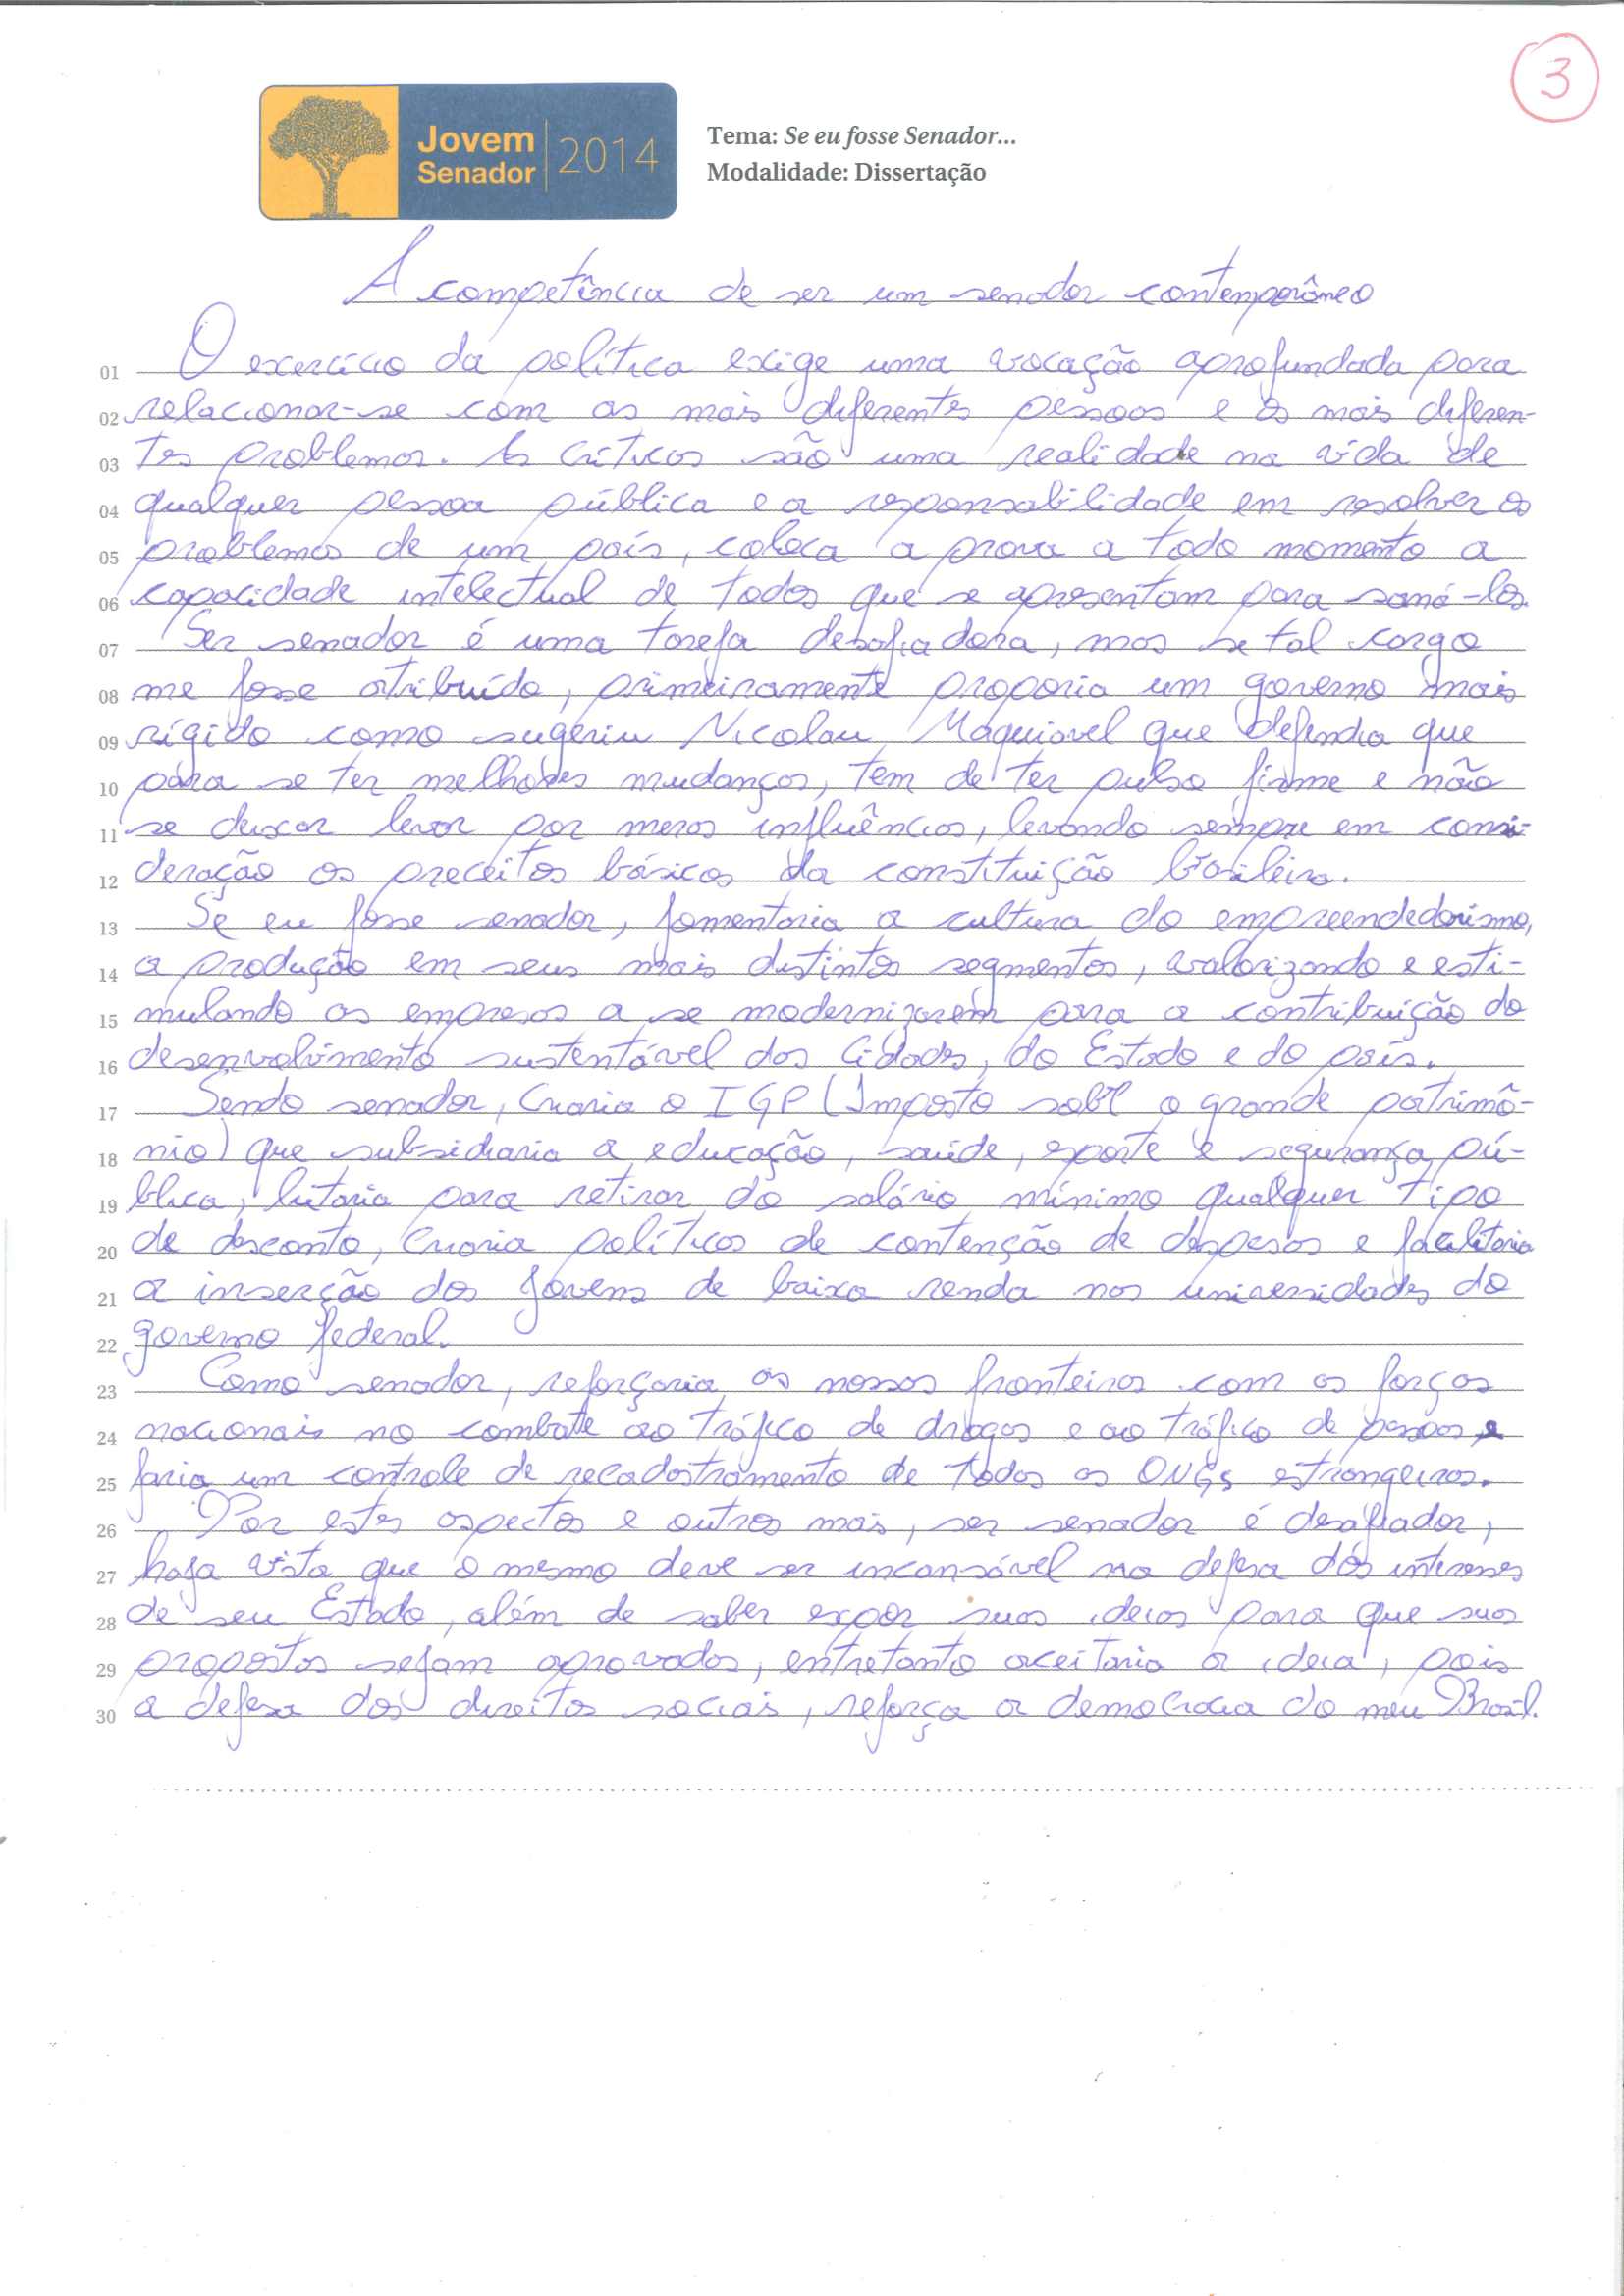 3
Jovem Senador 2014
Tema: Se eu fosse Senador...
Modalidade: Dissertação
A competência de ser um senador contemporâneo
01 O exercício da política exige uma vocação aprofundada para
02 relacionar-se com as mais diferentes pessoas e os mais diferen-
03 tes problemas. As críticas são uma realidade na vida de
04 qualquer pessoa pública e a responsabilidade em resolver os
05 problemas de um país, coloca a prova a todo momento a
06 capacidade intelectual de todos que se apresentam para saná-los.
07 Ser senador é uma tarefa desafiadora, mas se tal cargo
08 me fosse atribuído, primeiramente proporia um governo mais
09 rígido como sugeriu Nicolau Maquiavel que defendia que
10 para se ter melhores mudanças, tem de ter pulso firme e não
11 se deixar levar por meras influências, levando sempre em consi-
12 deração os preceitos básicos da constituição brasileira.
13 Se eu fosse senador, fomentaria a cultura do empreendedorismo,
14 a produção em seus mais distintos segmentos, valorizando e esti-
15 mulando as empresas a se modernizarem para a contribuição do
16 desenvolvimento sustentável das cidades, do Estado e do país.
17 Sendo senador, criaria o IGP (Imposto sobre o grande patrimô-
18 nio) que subsidiaria a educação, saúde, esporte e segurança pú-
19 blica, lutaria para retirar do salário mínimo qualquer tipo
20 de desconto, criaria políticas de contenção de despesas e facilitaria
21 a inserção dos jovens de baixa renda nas universidades do
22 governo federal.
23 Como senador, reforçaria as nossas fronteiras com as forças
24 nacionais no combate ao tráfico de drogas e ao tráfico de pessoas e
25 faria um controle de recadastramento de todas as ONGs estrangeiras.
26 Por estes aspectos e outros mais, ser senador é desafiador,
27 haja vista que o mesmo deve ser incansável na defesa dos interesses
28 de seu Estado, além de saber expor suas ideias para que suas
29 propostas sejam aprovadas, entretanto aceitaria a ideia, pois
30 a defesa dos direitos sociais, reforça a democracia do meu Brasil.